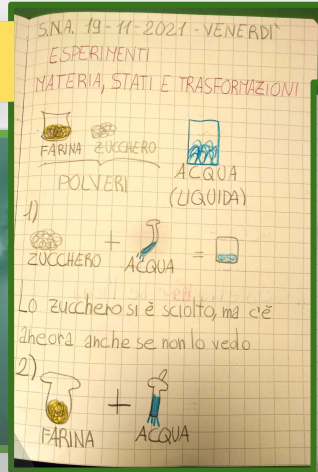 S.N.A. 19-11-2021 - VENERDI'
ESPERIMENTI
MATERIA, STATI E TRASFORMAZIONI
FARINA ZUCCHERO
ACQUA
POLVERI
(LIQUIDA)
1)
+ =
ZUCCHERO ACQUA
Lo zucchero si è sciolto, ma c'è
ancora anche se non lo vedo
2)
+ =
FARINA ACQUA